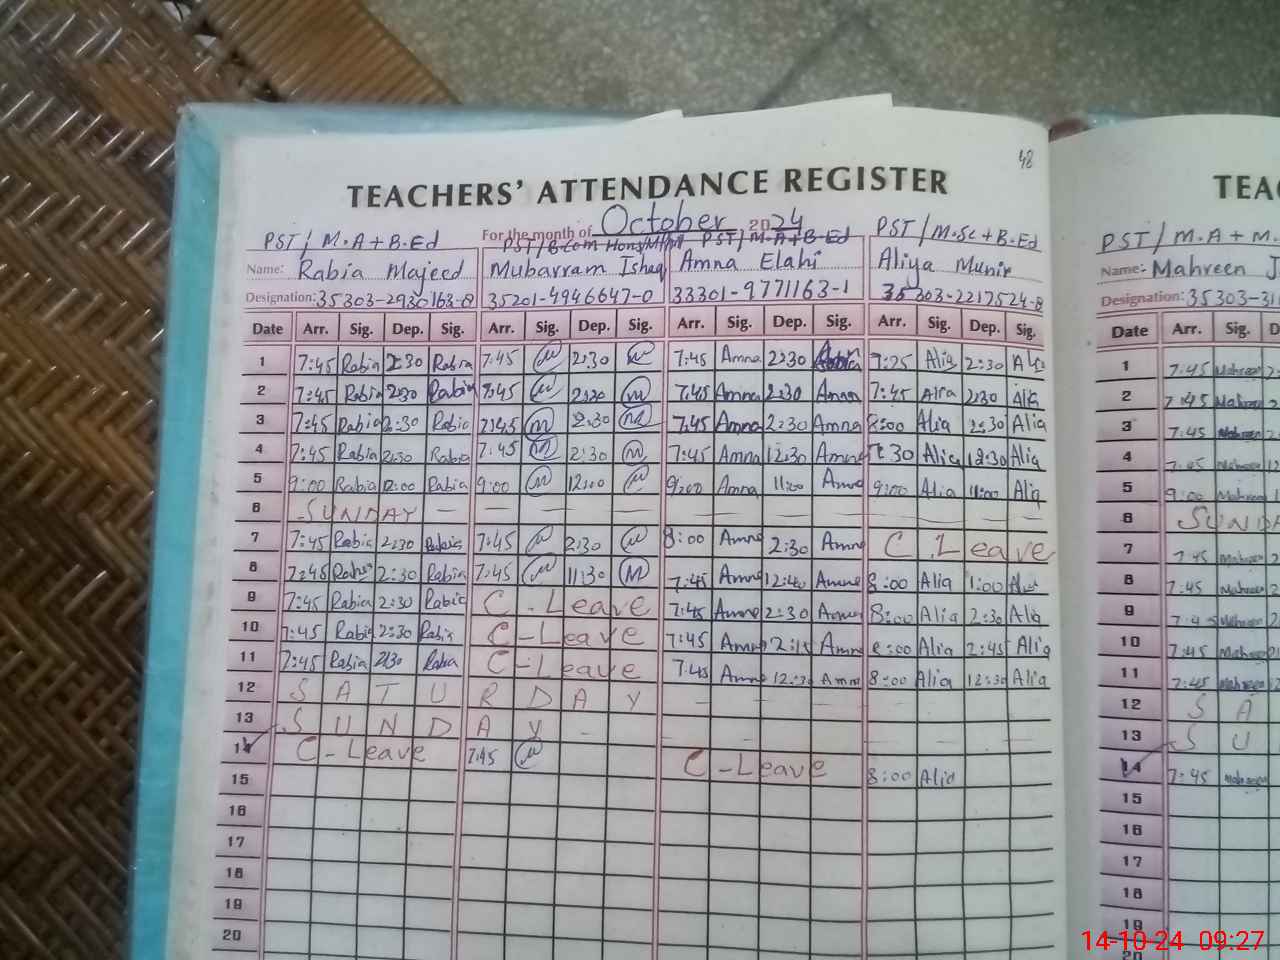 48
TEACHERS' ATTENDANCE REGISTER TEAC
For the month of October 2024
PST / M.A + B.Ed PST / B.Com Hons/ PST / M.A + B.Ed PST / M.Sc + B.Ed PST / M.A + M.
Name: Rabia Majeed Mubarram Ishaq Amna Elahi Aliya Munir Name: Mahreen J
Designation: 35303-2930163-8 35201-4946647-0 33301-9771163-1 35303-2217524-8 Designation: 35303-31
Date Arr. Sig. Dep. Sig. Arr. Sig. Dep. Sig. Arr. Sig. Dep. Sig. Arr. Sig. Dep. Sig. Date Arr. Sig. D
1 7:45 Rabia 2:30 Rabia 7:45 2:30 7:45 Amna 2:30 7:25 Alia 2:30 1 7:45 Mahreen 2
2 7:45 Rabia 2:30 Rabia 7:45 2:30 7:45 Amna 2:30 Amna 7:45 Alia 2:30 Alia 2 7:45 Mahreen 2
3 7:45 Rabia 2:30 Rabia 7:45 M 2:30 M 7:45 Amna 2:30 Amna 8:00 Alia 2:30 Alia 3 7:45 2
4 7:45 Rabia 2:30 Rabia 7:45 M 2:30 M 7:45 Amna 12:30 Amna 7:30 Alia 12:30 Alia 4 7:45 Mahreen 12
5 9:00 Rabia 12:00 Rabia 9:00 12:00 9:00 Amna 11:00 Amna 9:00 Alia 11:00 Alia 5 9:00 Mahreen 1
6 SUNDAY — — — — — — — — — — — — 6 SUNDA
7 7:45 Rabia 2:30 Rabia 7:45 2:30 8:00 Amna 2:30 Amna C. Leave 7 7:45 Mahreen 2
8 7:45 Rabia 2:30 Rabia 7:45 11:30 M 7:45 Amna 12:40 Amna 8:00 Alia 1:00 Alia 8 7:45 Mahreen 2
9 7:45 Rabia 2:30 Rabia C - Leave 7:45 Amna 2:30 Amna 8:00 Alia 2:30 Alia 9 7:45 Mahreen 2
10 7:45 Rabia 2:30 Rabia C - Leave 7:45 Amna 2:15 Amna 8:00 Alia 2:45 Alia 10 7:45 Mahreen 2
11 7:45 Rabia 2:30 Rabia C - Leave 7:45 Amna 12:30 Amna 8:00 Alia 12:30 Alia 11 7:45 Mahreen 12
12 SATURDAY — — — — 12 S A
13 SUNDAY — — — — 13 S U
14 C - Leave 7:45 C - Leave 8:00 Alia 14 7:45 Mahreen
15 15
16 16
17 17
18 18
19 19
20 20
14-10-24 09:27